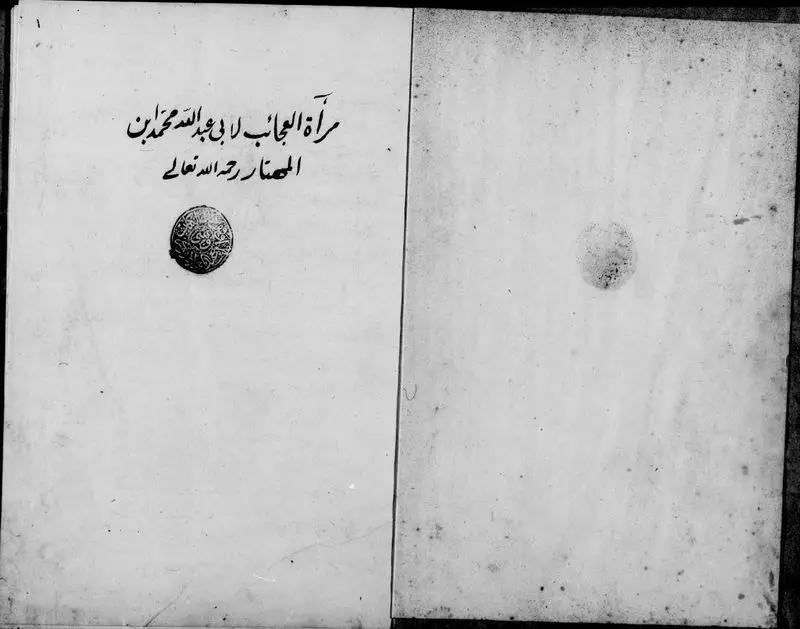 ١
مرآة العجائب لابى عبد الله محمد ابن
المهتار رحمه الله تعالى